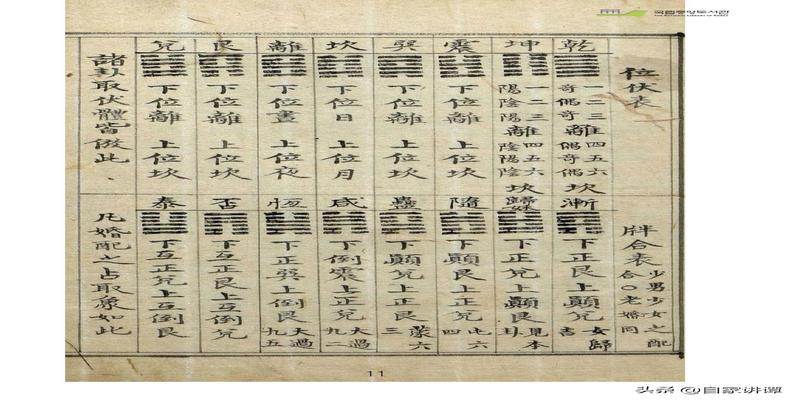 국립중앙도서관
THE NATIONAL LIBRARY OF KOREA
位伏表
乾 一二三 奇偶奇 離 四五六 偶奇偶 坎
坤 一二三 陽陰陽 離 四五六 陰陽陰 坎
震 下位離 上位坎
巽 下位離 上位坎
坎 下位日 上位月
離 下位晝 上位夜
艮 下位離 上位坎
兌 下位離 上位坎
諸卦取伏體皆倣此
牉合表 少男少女之配合〇老婚同
漸 下正艮上顛兌 女歸吉
歸妹 下正兌上顛艮 見本卦
隨 下顛艮上正兌 比六四
蠱 下顛兌上正艮 蒙六三
咸 下倒震上正兌 大過九二
恒 下正巽上倒艮 大過九五
否 下互正艮上互倒兌
泰 下互正兌上互倒艮
凡婚配之占取象如此
11
头条 @自家讲谭